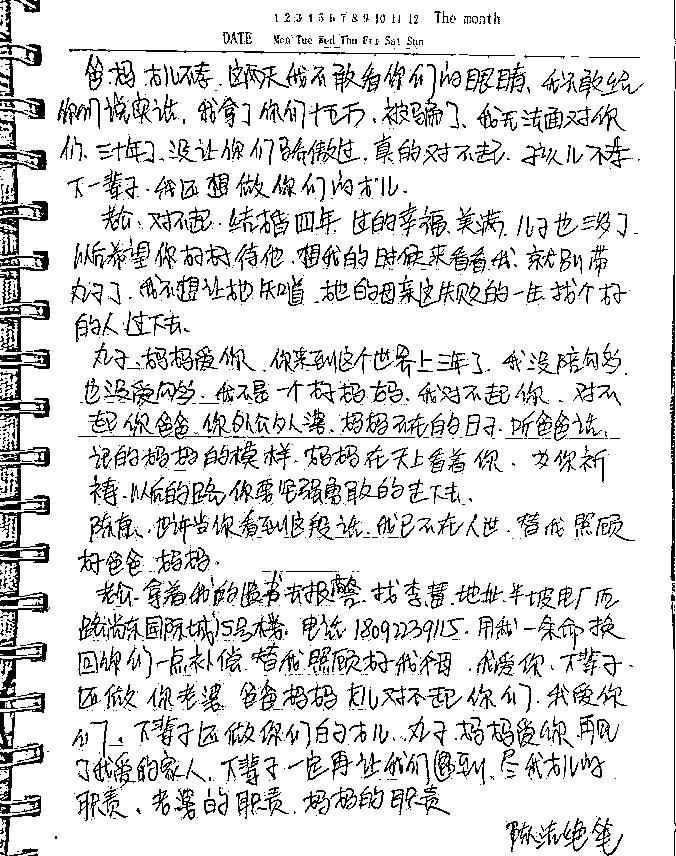 1 2 3 4 5 6 7 8 9 10 11 12 The month
DATE Mon Tue Wed Thu Fri Sat Sun
爸.妈.女儿不孝.这两天我不敢看你们的眼睛、我不敢给
你们说实话，我拿了你们十五万，被骗了、我无法面对你
们.三十年了、没让你们骄傲过，真的对不起.女儿不孝.
下一辈子.我还想做你们的女儿.
老公、对不起.结婚四年 过的幸福、美满，儿子也三岁了.
以后希望你好好待他.想我的时候来看看我、就别带
丸子了、我不想让他知道.他的母亲这失败的一生.找个好
的人过下去.
丸子、妈妈爱你、你来到这个世界上三年了、我没陪
也没爱够、我不是一个好妈妈、我对不起你、对不
起你爸爸、你外公外婆.妈妈不在的日子.听爸爸话、
记的妈妈的模样.妈妈在天上看着你、为你祈
祷.以后的路你要坚强勇敢的走下去.
也许当你看到这段话、我已不在人世.替我照顾
好爸爸.妈妈.
老公.拿着我的遗书去报警.找李 地址半坡电厂西
路尚东国际城15号楼.电话18092239115.用我一条命换
回你们一点补偿.替我照顾好我 我爱你、下辈子.
还做你老婆 爸爸妈妈女儿对不起你们.我爱你
们、下辈子还做你们的女儿、丸子妈妈爱你 再见
了我爱的家人、下辈子一定再让我们遇到.尽我女儿的
职责、老婆的职责、妈妈的职责
陈洁绝笔